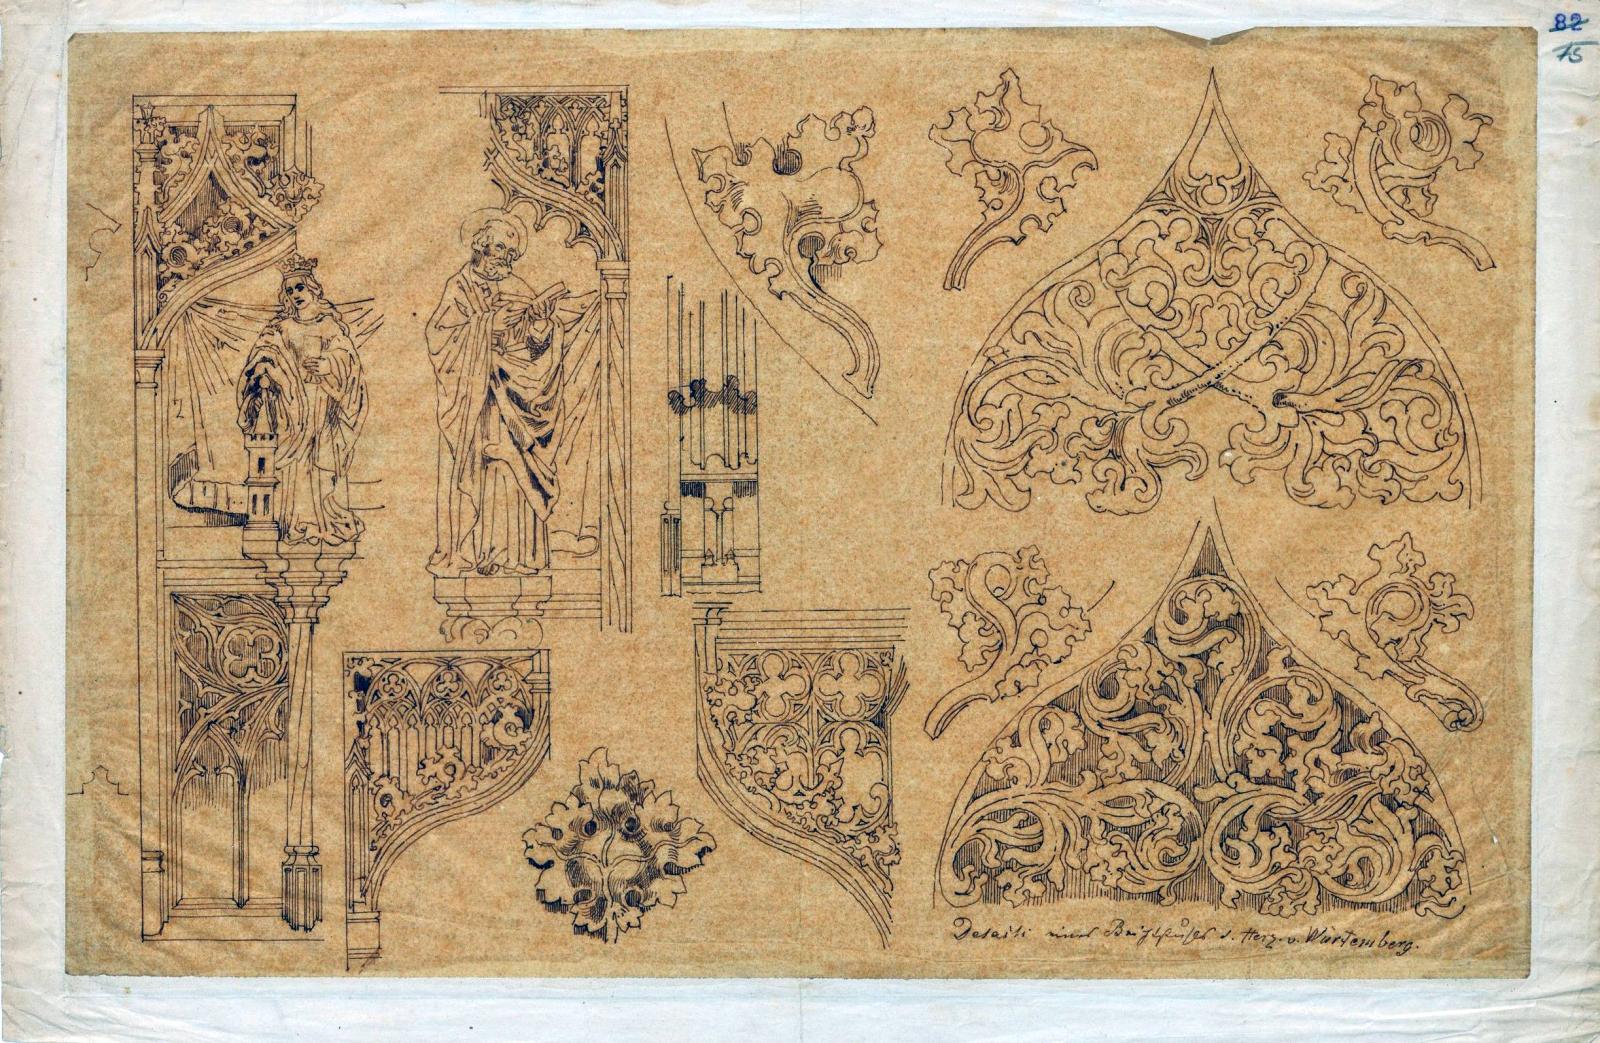 82
15
Details eines Beichtstuhles d. Herz. v. Würtemberg.